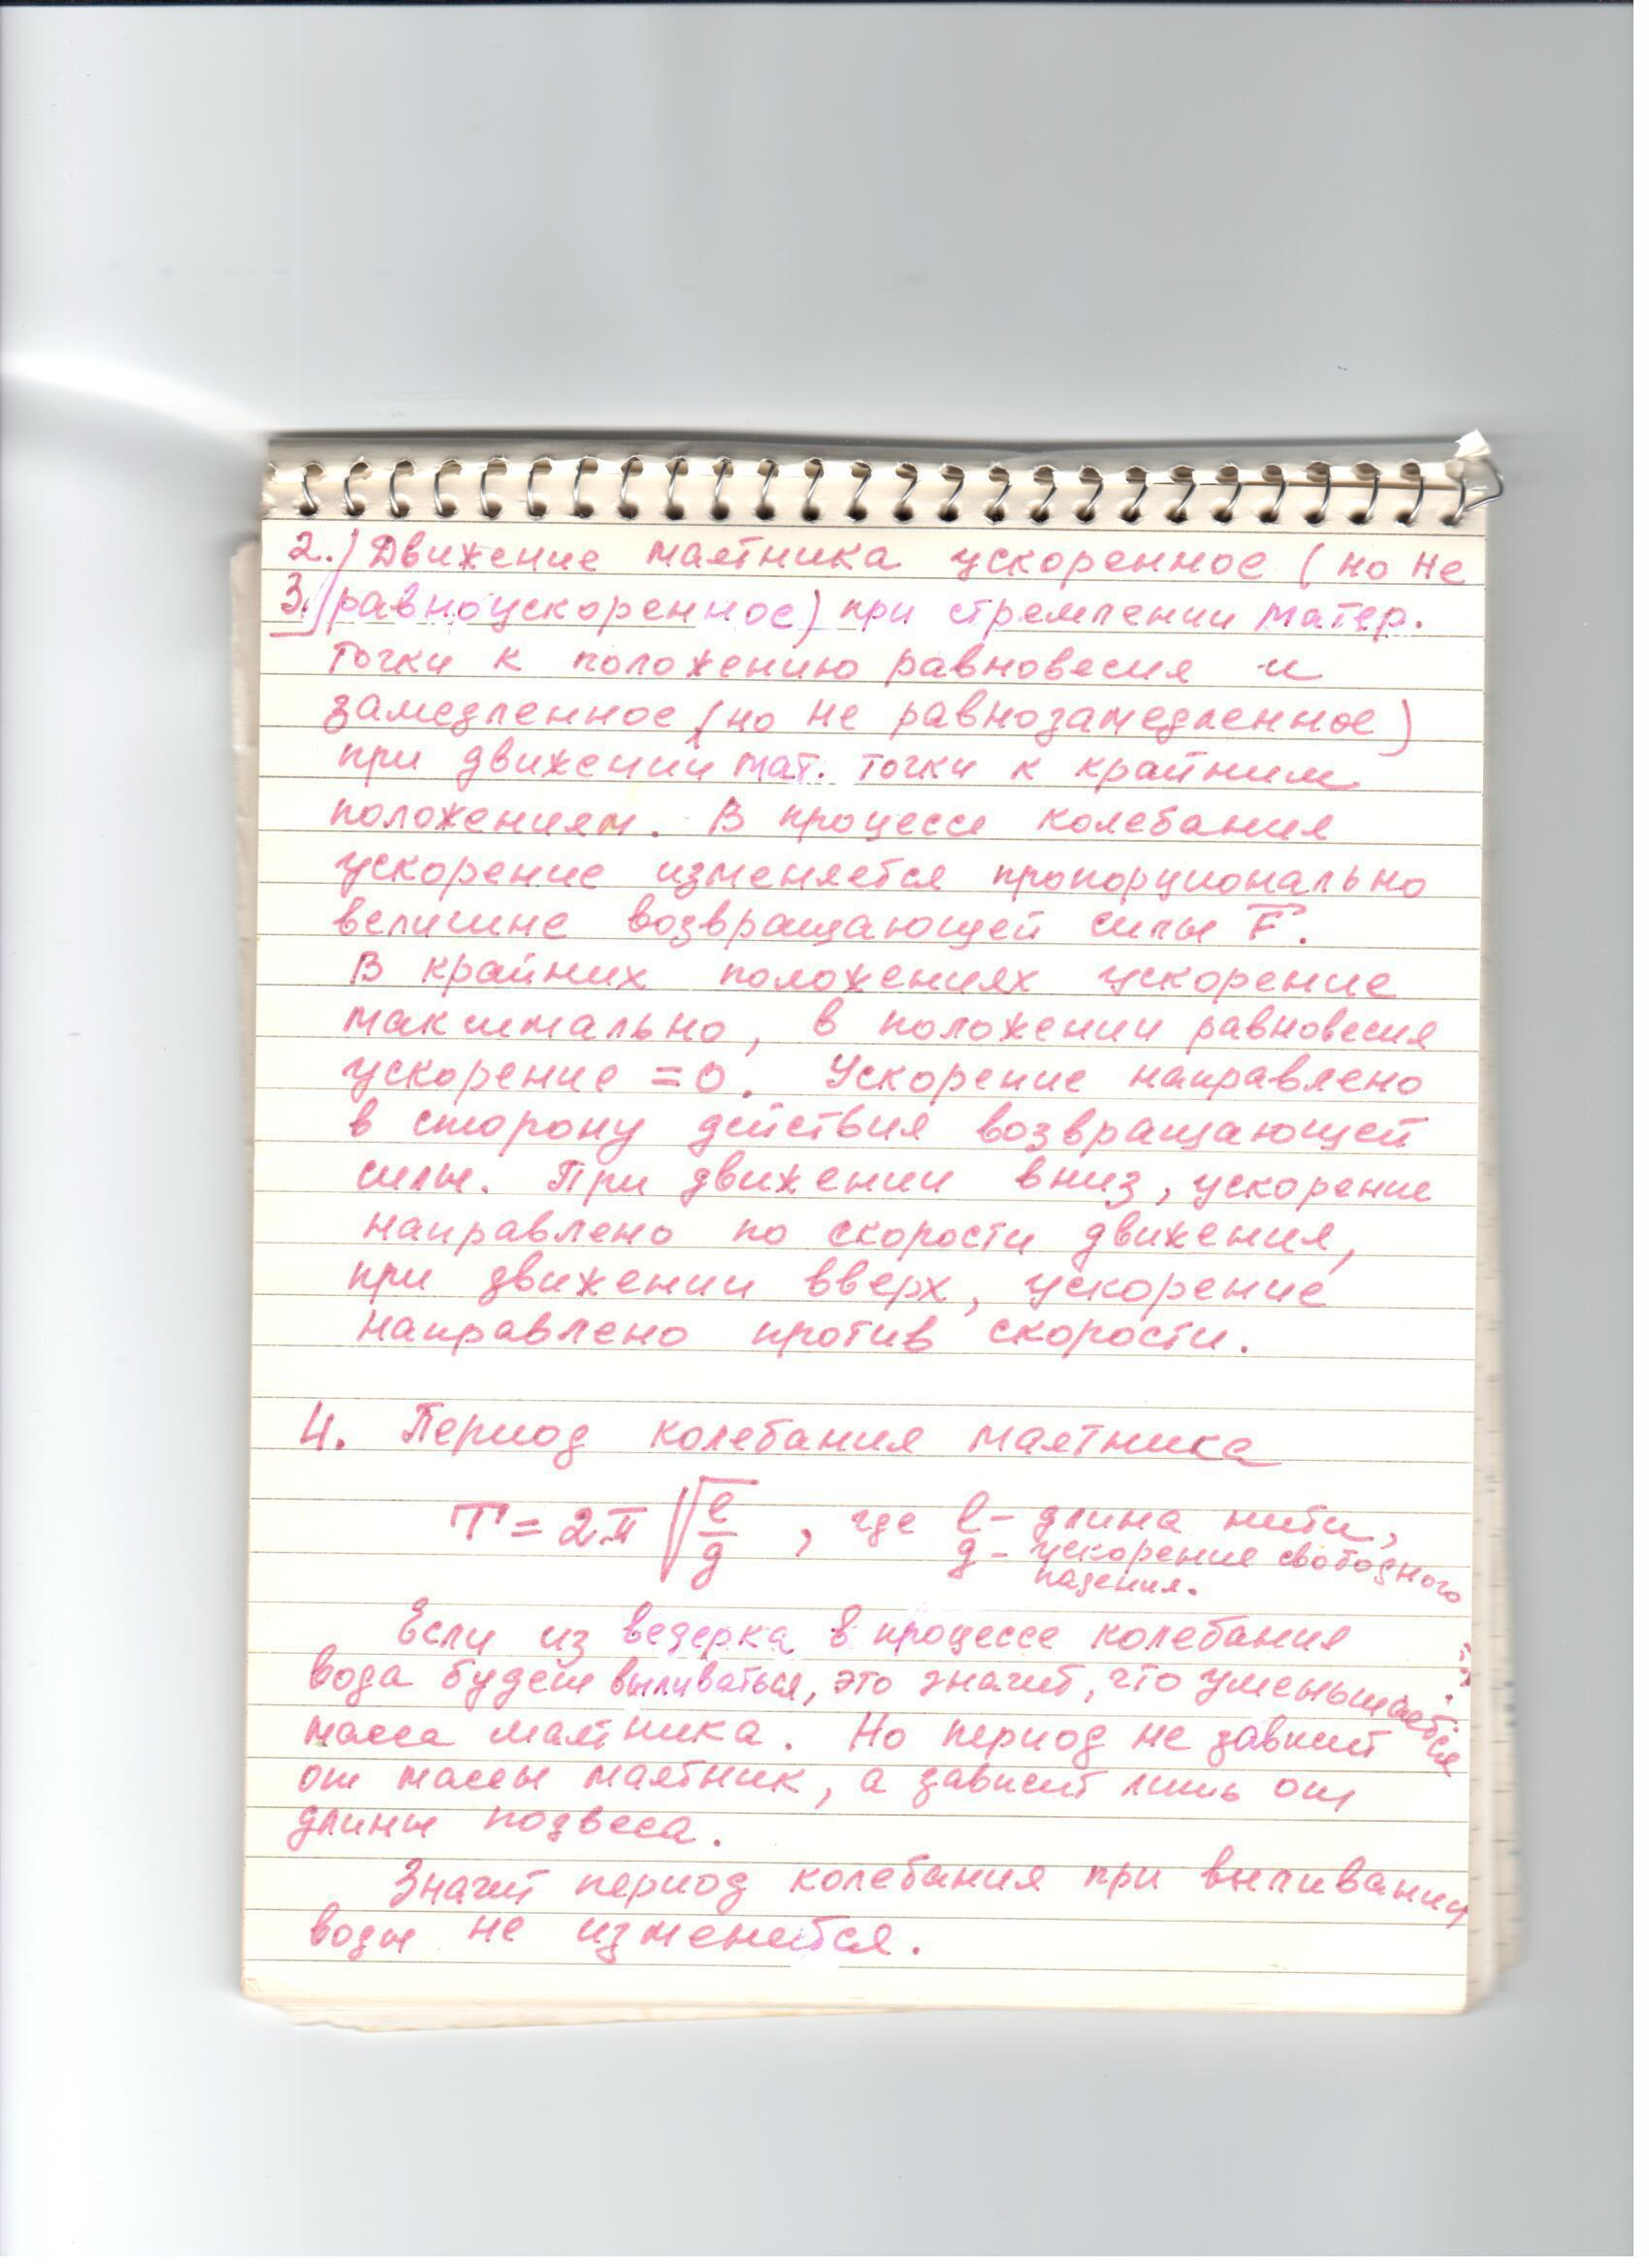 2.) Движение маятника ускоренное (но не
3.) равноускоренное) при стремлении матер.
точки к положению равновесия и
замедленное (но не равнозамедленное)
при движении мат. точки к крайним
положениям. В процессе колебания
ускорение изменяется пропорционально
величине возвращающей силы F.
В крайних положениях ускорение
максимально, в положении равновесия
ускорение = 0. Ускорение направлено
в сторону действия возвращающей
силы. При движении вниз, ускорение
направлено по скорости движения,
при движении вверх, ускорение
направлено против скорости.
4. Период колебания маятника
T = 2π √(l/g), где l – длина нити,
g – ускорение свободного
падения.
Если из ведерка в процессе колебания
вода будет выливаться, это значит, что уменьшается
масса маятника. Но период не зависит
от массы маятник, а зависит лишь от
длины подвеса.
Значит период колебания при выливании
воды не изменется.